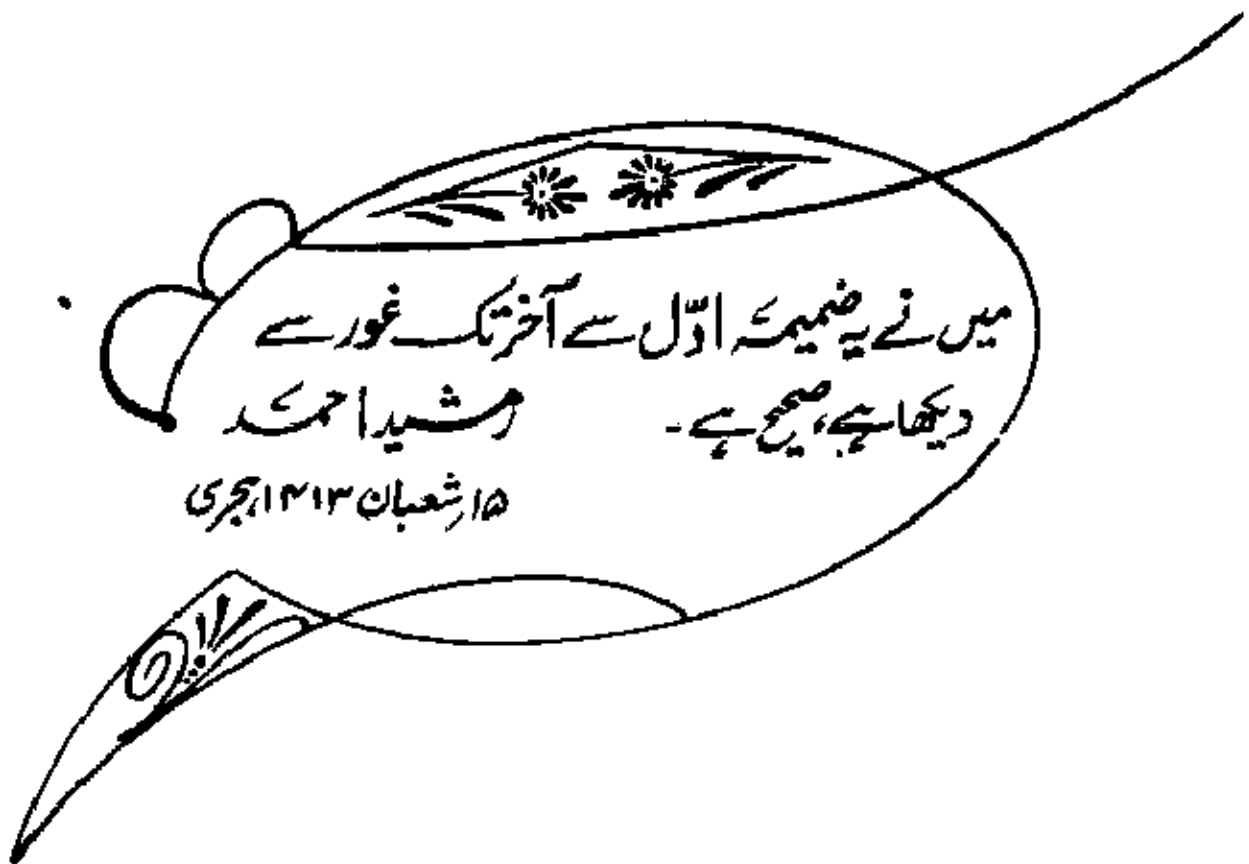 میں نے یہ ضمیمہ اوّل سے آخر تک غور سے
دیکھا ہے، صحیح ہے۔ رشید احمد
۱۵؍شعبان ۱۴۱۳ہجری